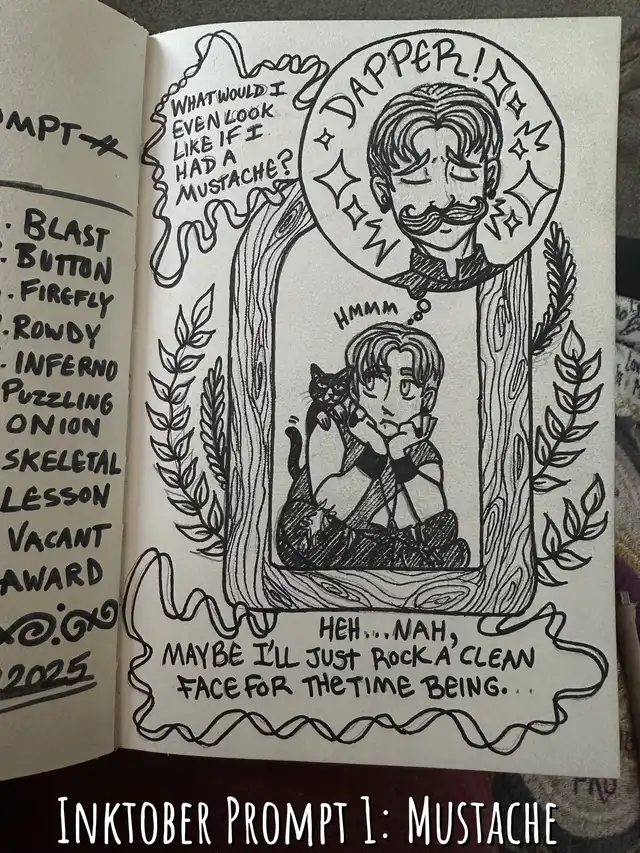 OMPT #
BLAST
BUTTON
FIREFLY
ROWDY
INFERNO
PUZZLING
ONION
SKELETAL
LESSON
VACANT
AWARD
2025
WHAT WOULD I
EVEN LOOK
LIKE IF I
HAD A
MUSTACHE?
DAPPER!
HMMM
HEH...NAH,
MAYBE I'LL JUST ROCK A CLEAN
FACE FOR THE TIME BEING...
INKTOBER PROMPT 1: MUSTACHE